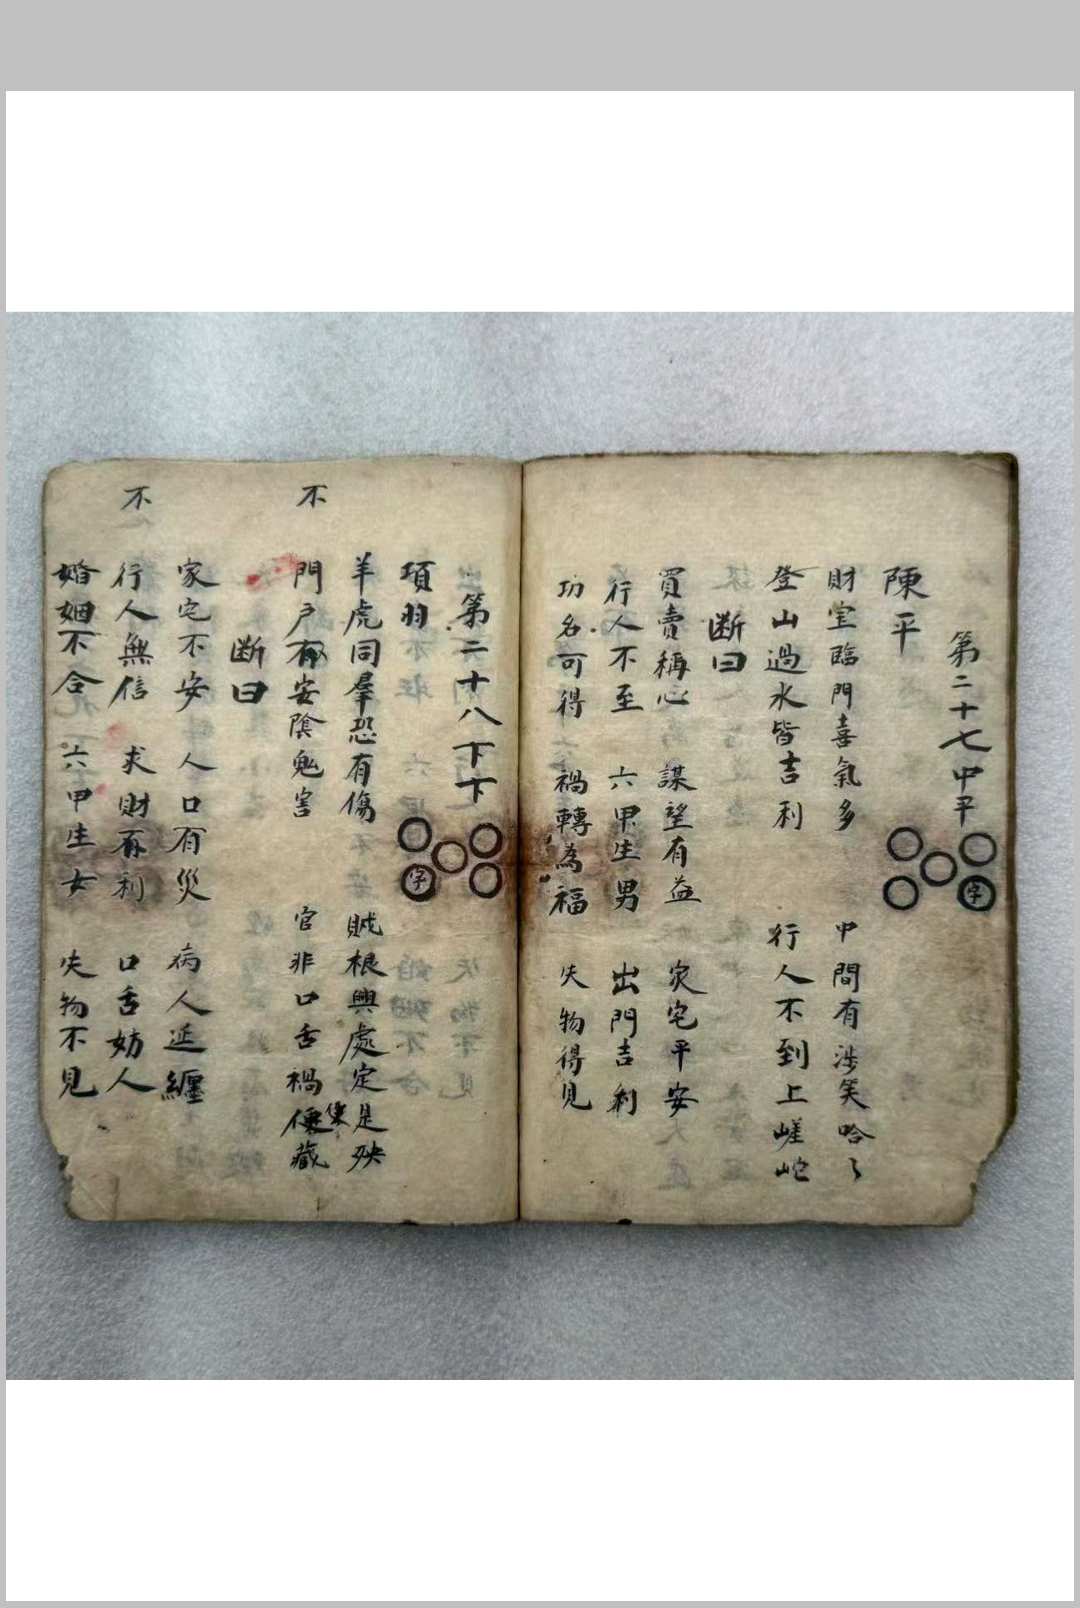 第二十七中平
字
陳平
財宝臨門喜氣多 中間有涉笑哈々
登山過水皆吉利 行人不到上嵯峨
断曰
買賣稱心 謀望有益 家宅平安
行人不至 六甲生男 出門吉利
功名可得 禍轉為福 失物得見
第二十八下下
字
項羽
羊虎同羣恐有傷 賊根興處定是殃
不
門户有安陰鬼害 官非口舌禍藏
断曰
家宅不安 人口有災 病人延纏
不
行人無信 求財有利 口舌妨人
婚姻不合 六甲生女 失物不見